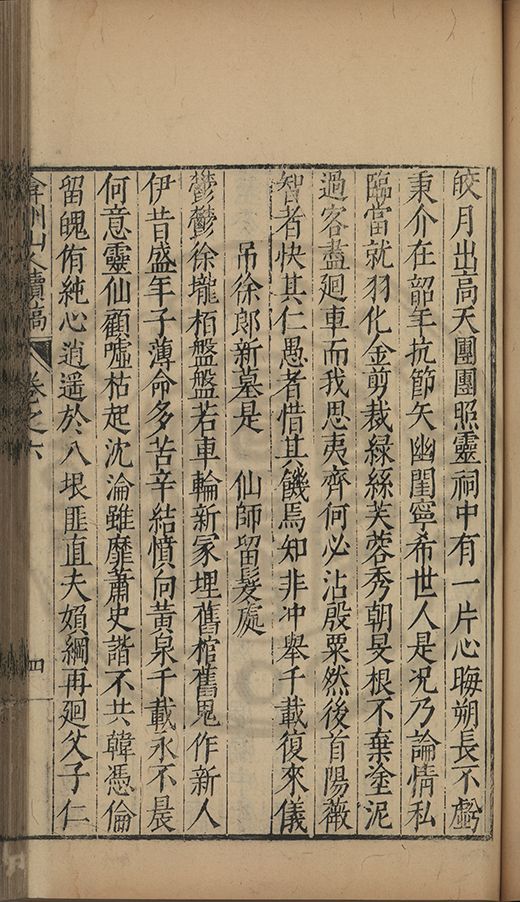 皎月出高天團團照靈祠中有一片心晦朔長不虧
秉介在韶年抗節矢幽閨寧希世人是況乃論情私
臨當就羽化金剪裁綠絲芙蓉秀朝旻根不棄塗泥
過客盡廻車而我思夷齊何必沾殷粟然後首陽薇
智者快其仁愚者惜其饑焉知非冲舉千載復來儀
吊徐郎新墓是 仙師留髮處
鬱鬱徐壠栢盤盤若車輪新冢埋舊棺舊鬼作新人
伊昔盛年子薄命多苦辛結憤向黃泉千載永不晨
何意靈仙顧噓枯起沈淪雖靡蕭史諧不共韓憑倫
留魄侑純心逍遥於八垠匪直夫婦綱再廻父子仁
弇州山人續稿 卷之六 四